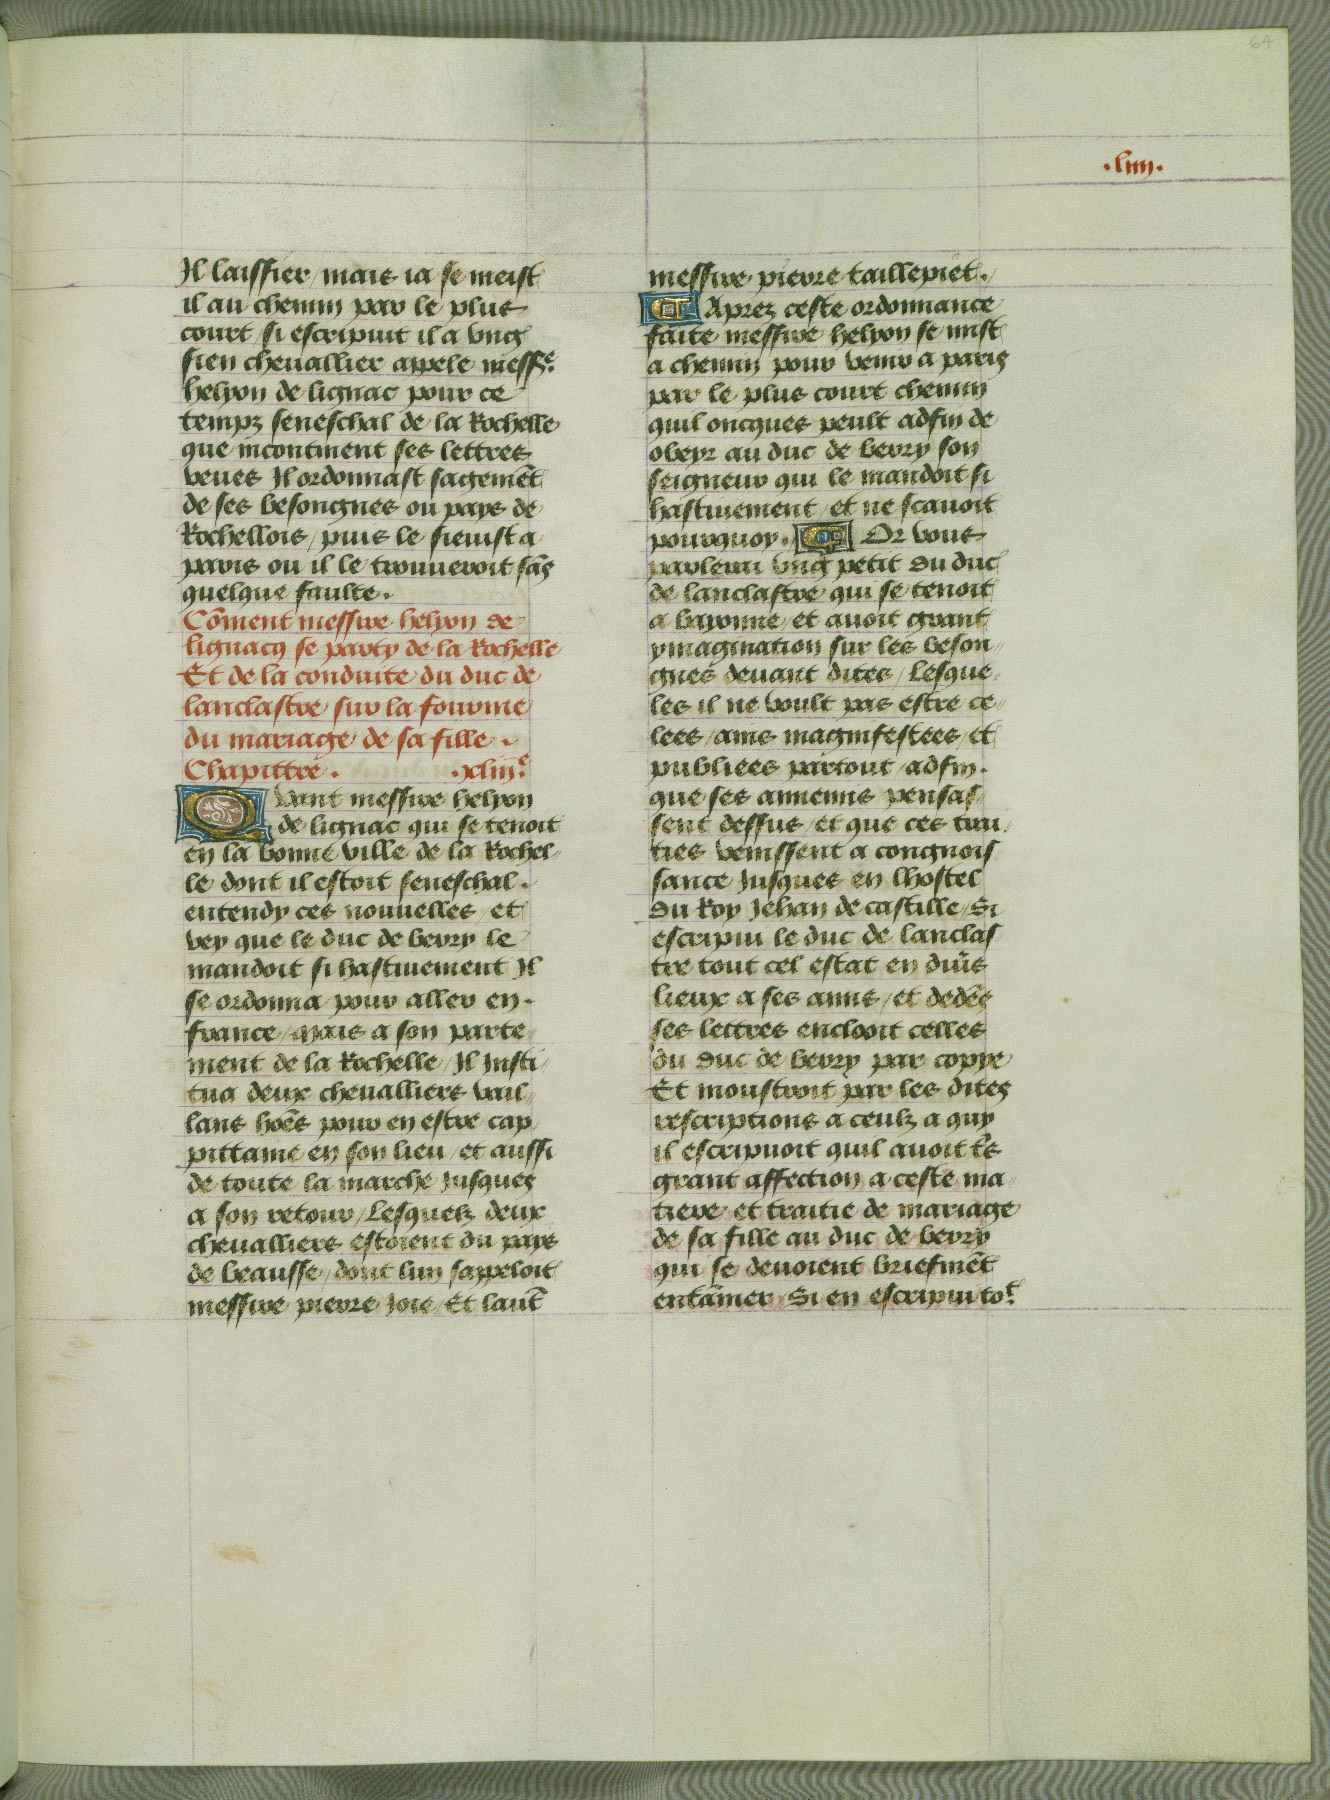 64
.liiii.
Il laissier / mais ia se meist
il au chemin par le plus
court / si escripuit il a vng
sien cheuallier appele mess^e.
helyon de lignac pour ce
tempz seneschal de la Rochelle
que incontinent ses lettres
veues Il ordonnast sagemēt
de ses besongnes ou pays de
Rochellois / puis le sieuist a
paris ou il le trouueroit sās
quelque faulte.
Cōment messire helyon de
lignacq se party de la Rochelle
Et de la conduite du duc de
lanclastre sur la fourme
du mariage de sa fille.
Chapittre. .xliii^e.
Quant messire helyon
de lignac qui se tenoit
en la bonne ville de la Rochel-
le dont il estoit seneschal.
entendy ces nouuelles / et
vey que le duc de berry le
mandoit si hastiuement Il
se ordonna pour aller en.
france / mais a son parte-
ment de la Rochelle / Il Insti-
tua deux cheualliers vail-
lans hōes pour en estre cap-
pittaine en son lieu / et aussi
de toute la marche Jusques
a son retour / Lesquelz deux
cheualliers estoient du pays
de beausse / dont lun sappeloit
messire pierre Joie / Et laut̄
messire pierre taillepiet.
Aprez ceste ordonnance
faite messire helyon se mist
a chemin pour venir a paris
par le plus court chemin
quil oncques peult adfin de
obeyr au duc de berry son
seigneur qui le mandoit si
hastiuement / et ne scauoit
pourquoy. Or vous
parleray vng petit du duc
de lanclastre qui se tenoit
a bayonne / et auoit grant
ymagination sur les beson-
gnes deuant dites / Lesque-
les il ne voult pas estre ce-
lees / ains magnifestees / et
publiees partout / adfin.
que ses annemis pensas-
sent dessus / et que ces trai-
ties venissent a congnois
sance Jusques en lhostel
du Roy Jehan de castille / Si
escripui le duc de lanclas
tre tout cel estat en diūs
lieux a ses amis / et dedēs
ses lettres enclooit celles
du duc de berry par coppye
Et moustroit par les dites
rescriptions a ceulz a quy
il escripuoit quil auoit t̄s
grant affection a ceste ma-
tiere / et traitie de mariage
de sa fille au duc de berry
qui se deuoient briefmēt
entāmer / Si en escripui to^t.